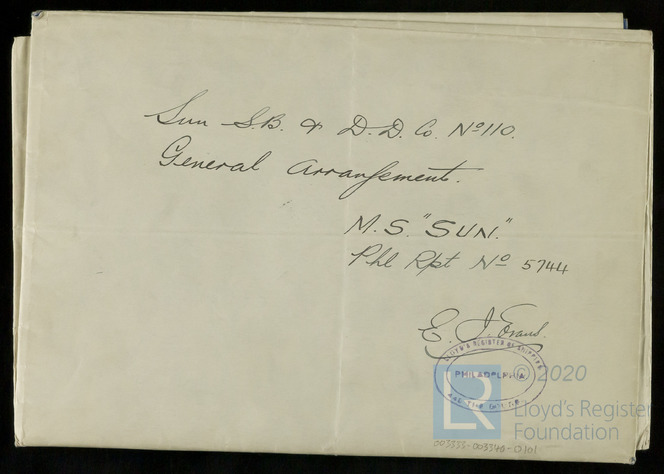 Sun S.B. & D.D. Co. No 110.
General Arrangement.
M.S. "SUN."
Phl Rpt No 5744
E. J. Evans.
LLOYD'S REGISTER OF SHIPPING
PHILADELPHIA
LR
© 2020
Lloyd's Register
Foundation
003333-003340-0101